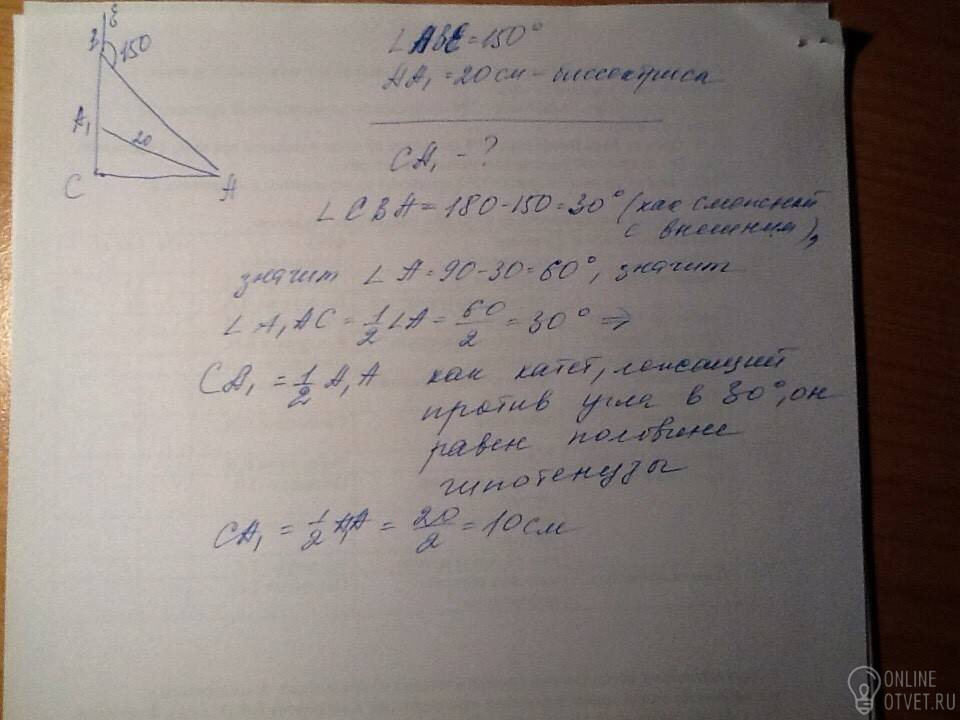 E
B
150
A₁
20
C
A
∠ABE=150°
AA₁=20см – биссектриса
CA₁ – ?
∠CBA=180-150=30° (как смежный
с внешним),
значит ∠A=90-30=60°, значит
∠A₁AC=1/2∠A=60/2=30° ⇒
CA₁=1/2A₁A как катет, лежащий
против угла в 30°, он
равен половине
гипотенузы
CA₁=1/2A₁A=20/2=10см
ONLINE
OTVET.RU